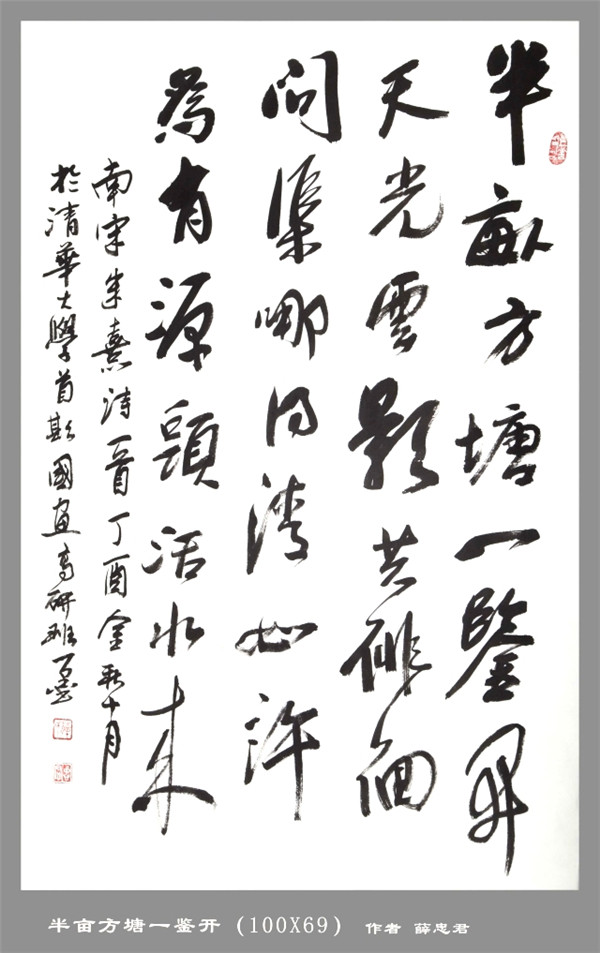 半畝方塘一鑒開
天光雲影共徘徊
問渠哪得清如許
為有源頭活水來
南宋朱熹詩一首丁酉金秋十月
於清華大學首期國畫高研班
半亩方塘一鉴开 (100X69) 作者 薛忠君